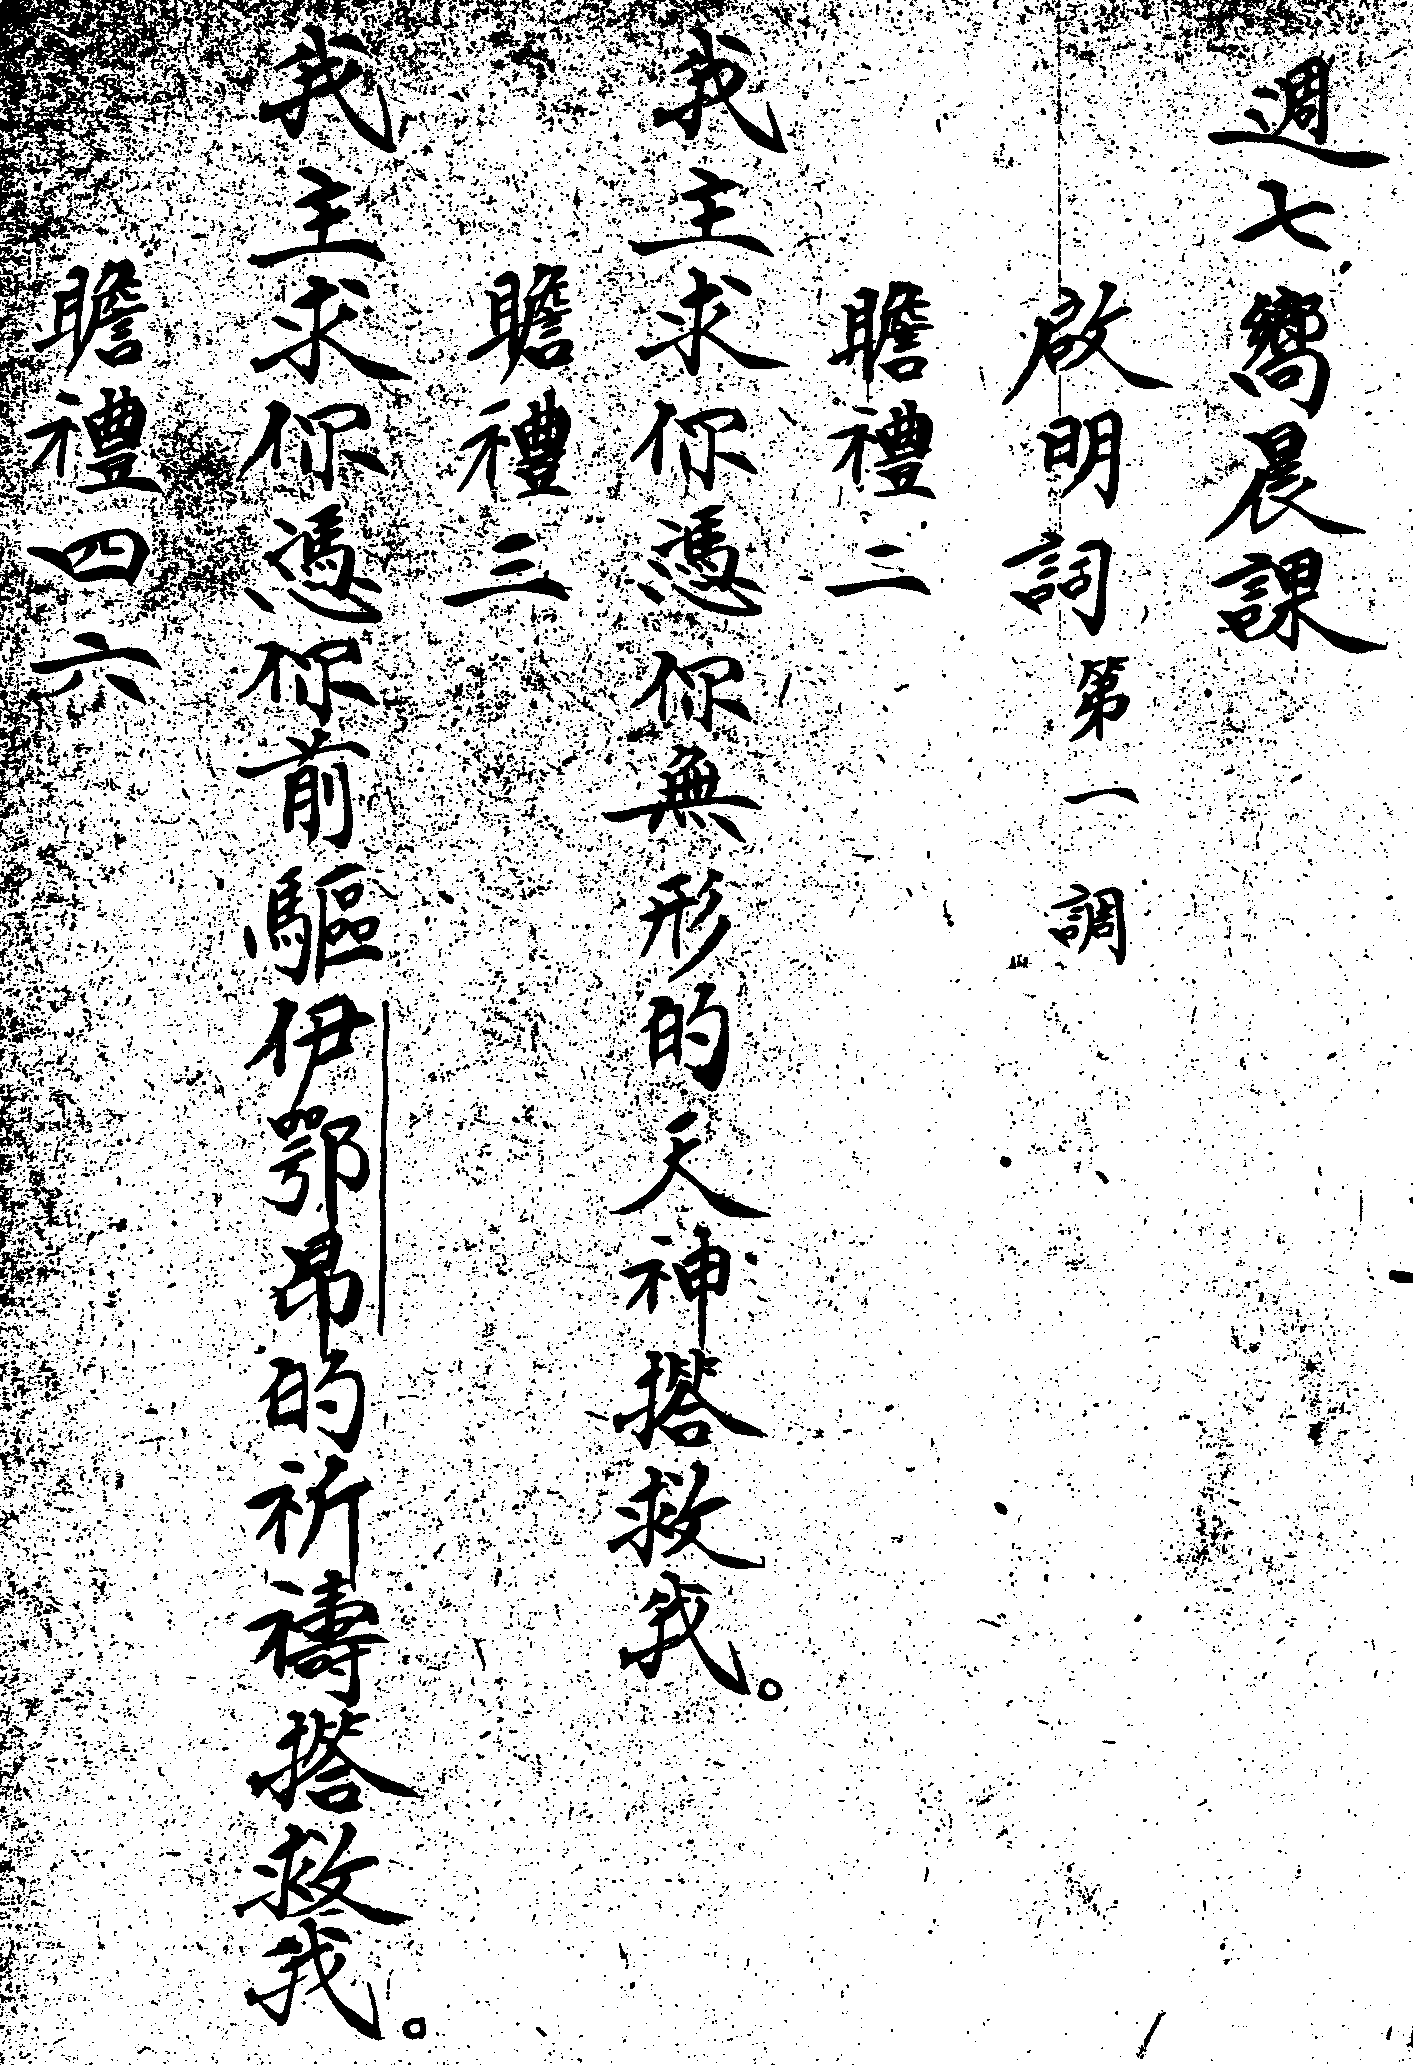 週七嚮晨課
啟明詞第一調
瞻禮二
我主求你憑你無形的天神搭救我。
瞻禮三
我主求你憑你前驅伊鄂昂的祈禱搭救我。
瞻禮四六